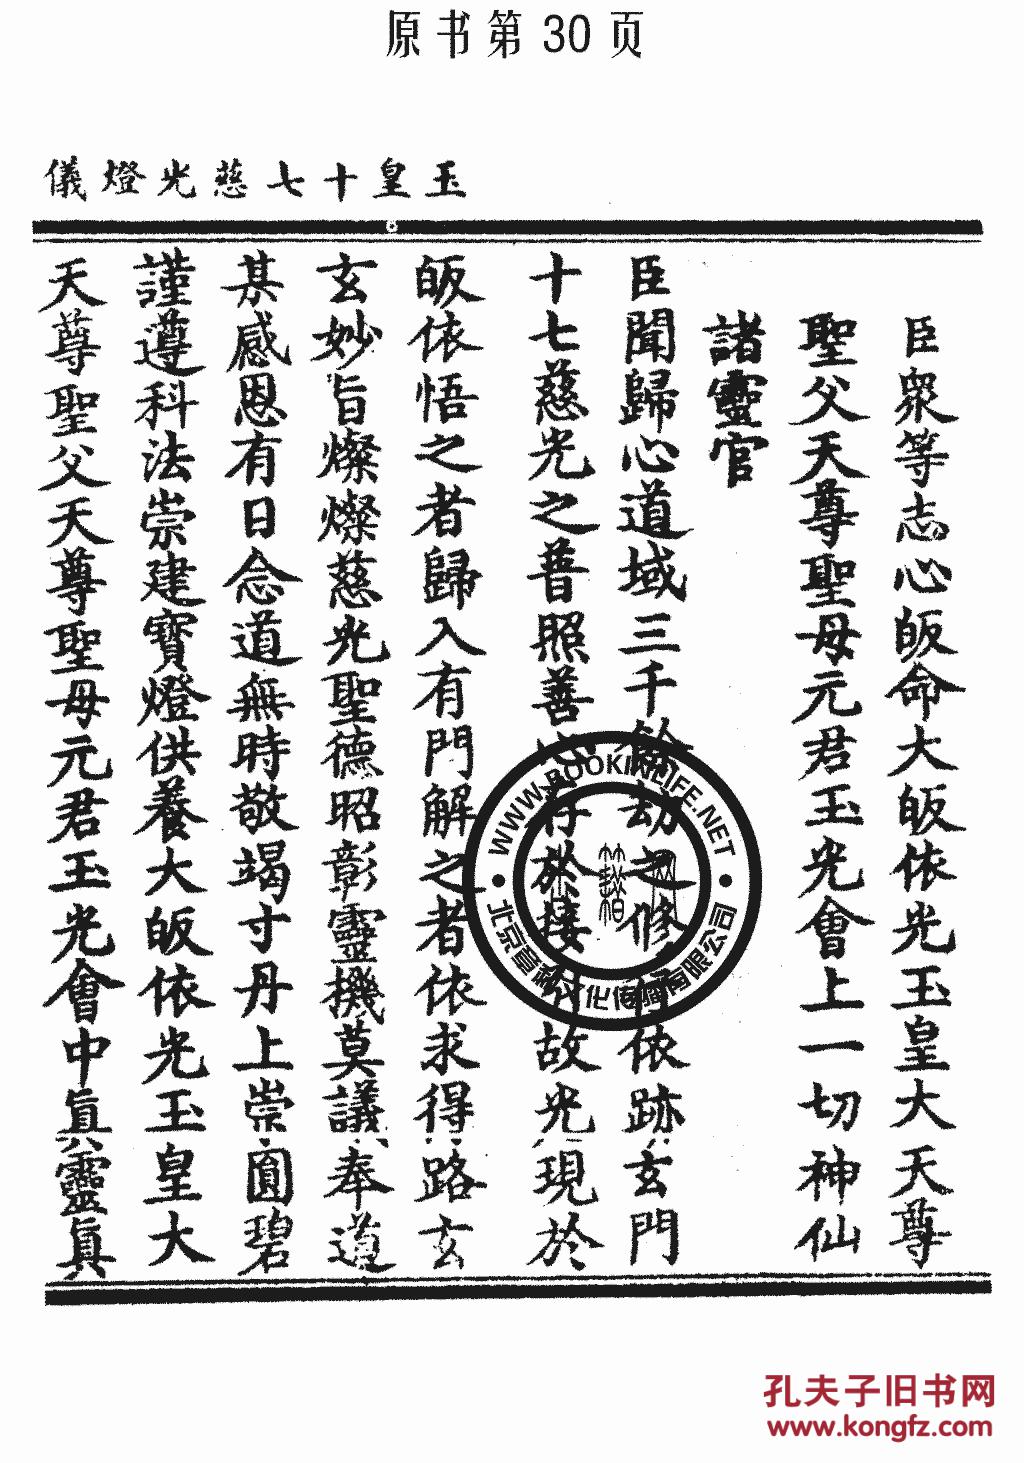 原书第30页
玉皇十七慈光燈儀
臣衆等志心皈命大皈依光玉皇大天尊
聖父天尊聖母元君玉光會上一切神仙
諸靈官
臣聞歸心道域三千餘劫之修何依跡玄門
十七慈光之普照善心存於接付故光現於
皈依悟之者歸入有門解之者依求得路玄
玄妙旨燦燦慈光聖德昭彰靈機莫議奉道
某感恩有日念道無時敬竭寸丹上崇圓碧
謹遵科法崇建寶燈供養大皈依光玉皇大
天尊聖父天尊聖母元君玉光會中眞靈眞
WWW.BOOKINLIFE.NET
孔夫子旧书网
www.kongfz.com